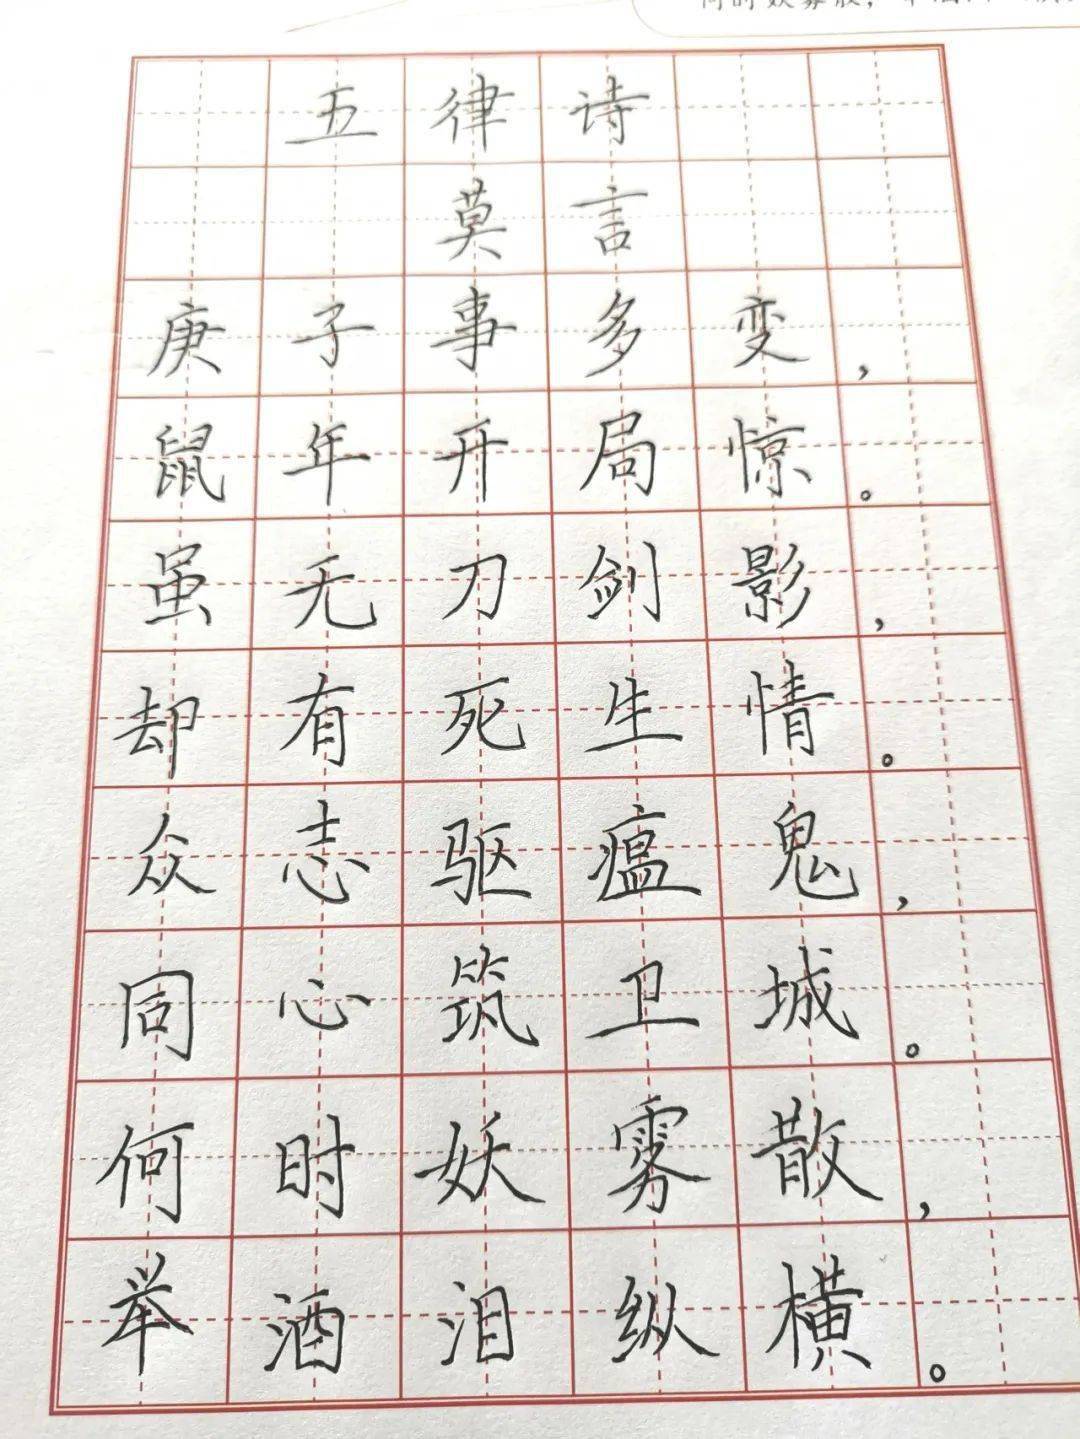 五律诗
莫言
庚子事多变，
鼠年开局惊。
虽无刀剑影，
却有死生情。
众志驱瘟鬼，
同心筑卫城。
何时妖雾散，
举酒泪纵横。